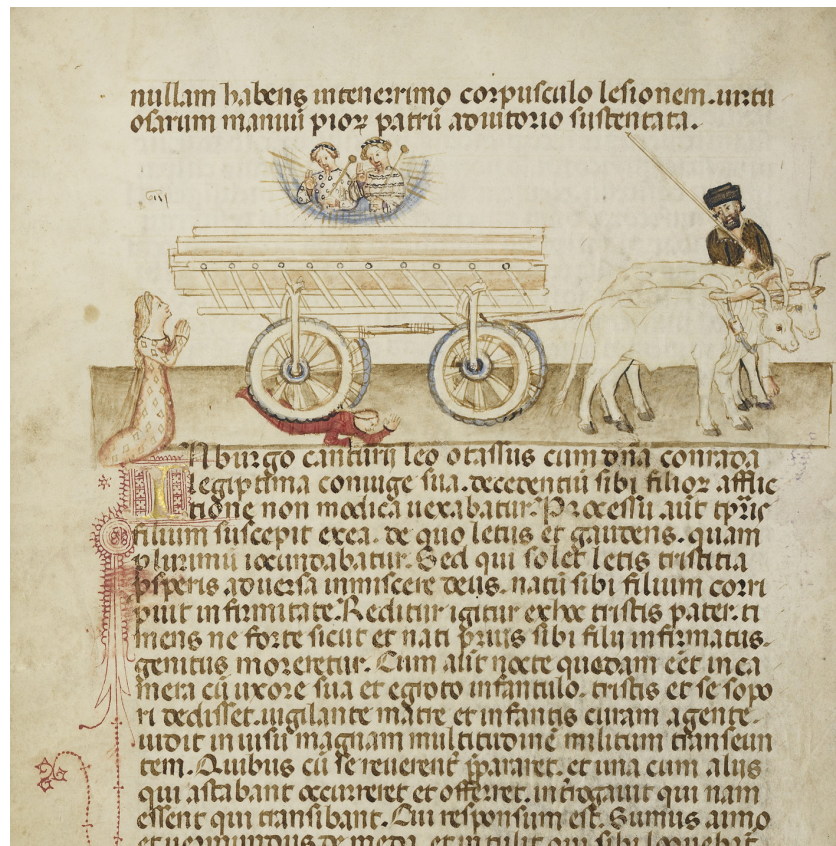 nullam habens intenerrimo corpusculo lesionem. uirtu
osarum manuū pioꝝ patrū adiutorio sustentata.
IN burgo canturij leo otassus cum dn̄a conrada
legiptima coniuge sua. decedentiū sibi filioꝝ afflic
tione non modica uexabatur. Processu aūt tp̄ris
filium suscepit ex ea. de quo letus et gaudens. quam
plurimū iocundabatur. Sed qui solet letis tristitia
ꝓsperis aduersa inmiscere deus. natū sibi filium corri
puit infirmitate. Reditur igitur ex hoc tristis pater. ti
mens ne forte sicut et nati prius sibi filij infirmatus.
genitus moreretur. Cum aūt nocte quadam eēt in ca
mera cū uxore sua et egroto infantulo. tristis et se sopo
ri dedisset. uigilante matre et infantis curam agente.
uidit in uisū magnam multitudinē militum transeun
tem. Quibus cū se reuerent̄ p̄pararet. et una cum alijs
qui astabant occurreret et offerret. int̄rogauit qui nam
essent qui transibant. Cui responsum est. Sumus aimo
et uermundus de meda. et intulit qui sibi loquebat̄